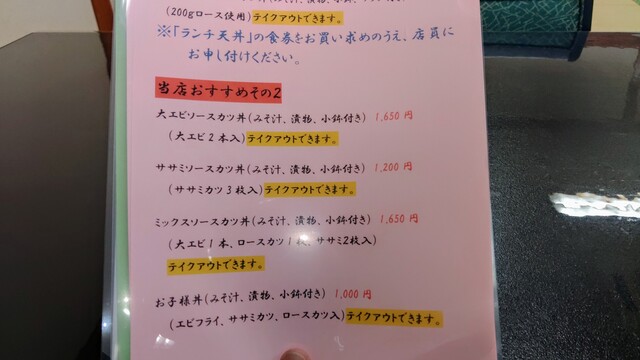 (200gロース使用)テイクアウトできます。
※「ランチ天丼」の食券をお買い求めのうえ、店員に
お申し付けください。
当店おすすめその2
大エビソースカツ丼(みそ汁、漬物、小鉢付き) 1,650 円
(大エビ2本入)テイクアウトできます。
ササミソースカツ丼(みそ汁、漬物、小鉢付き) 1,200 円
(ササミカツ3枚入)テイクアウトできます。
ミックスソースカツ丼(みそ汁、漬物、小鉢付き) 1,650 円
(大エビ1本、ロースカツ1枚、ササミ2枚入)
テイクアウトできます。
お子様丼(みそ汁、漬物、小鉢付き) 1,000 円
(エビフライ、ササミカツ、ロースカツ入)テイクアウトできます。